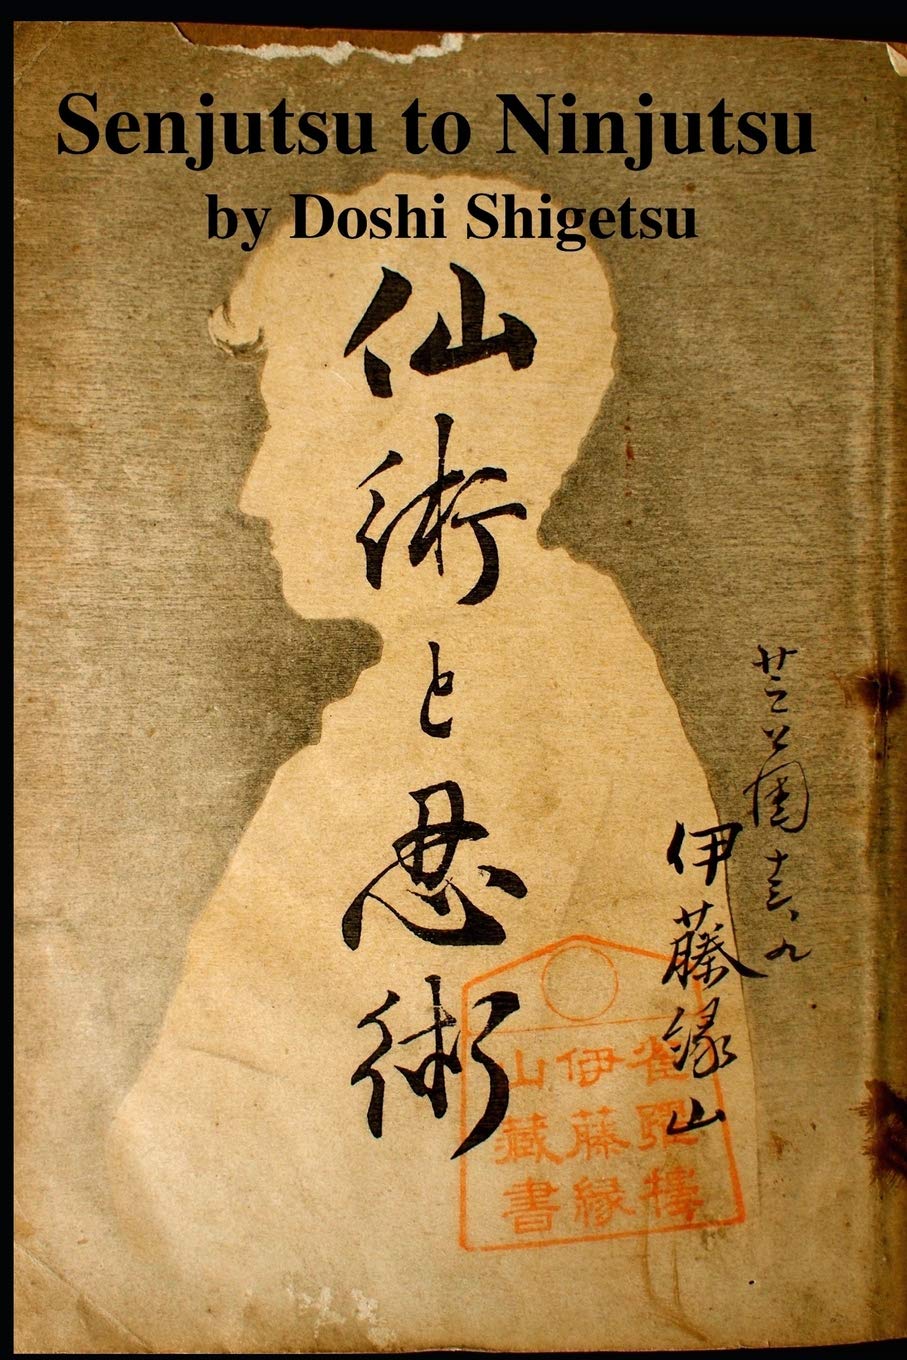 Senjutsu to Ninjutsu
by Doshi Shigetsu
仙術と忍術
伊藤縁山
伊藤縁
山藏書